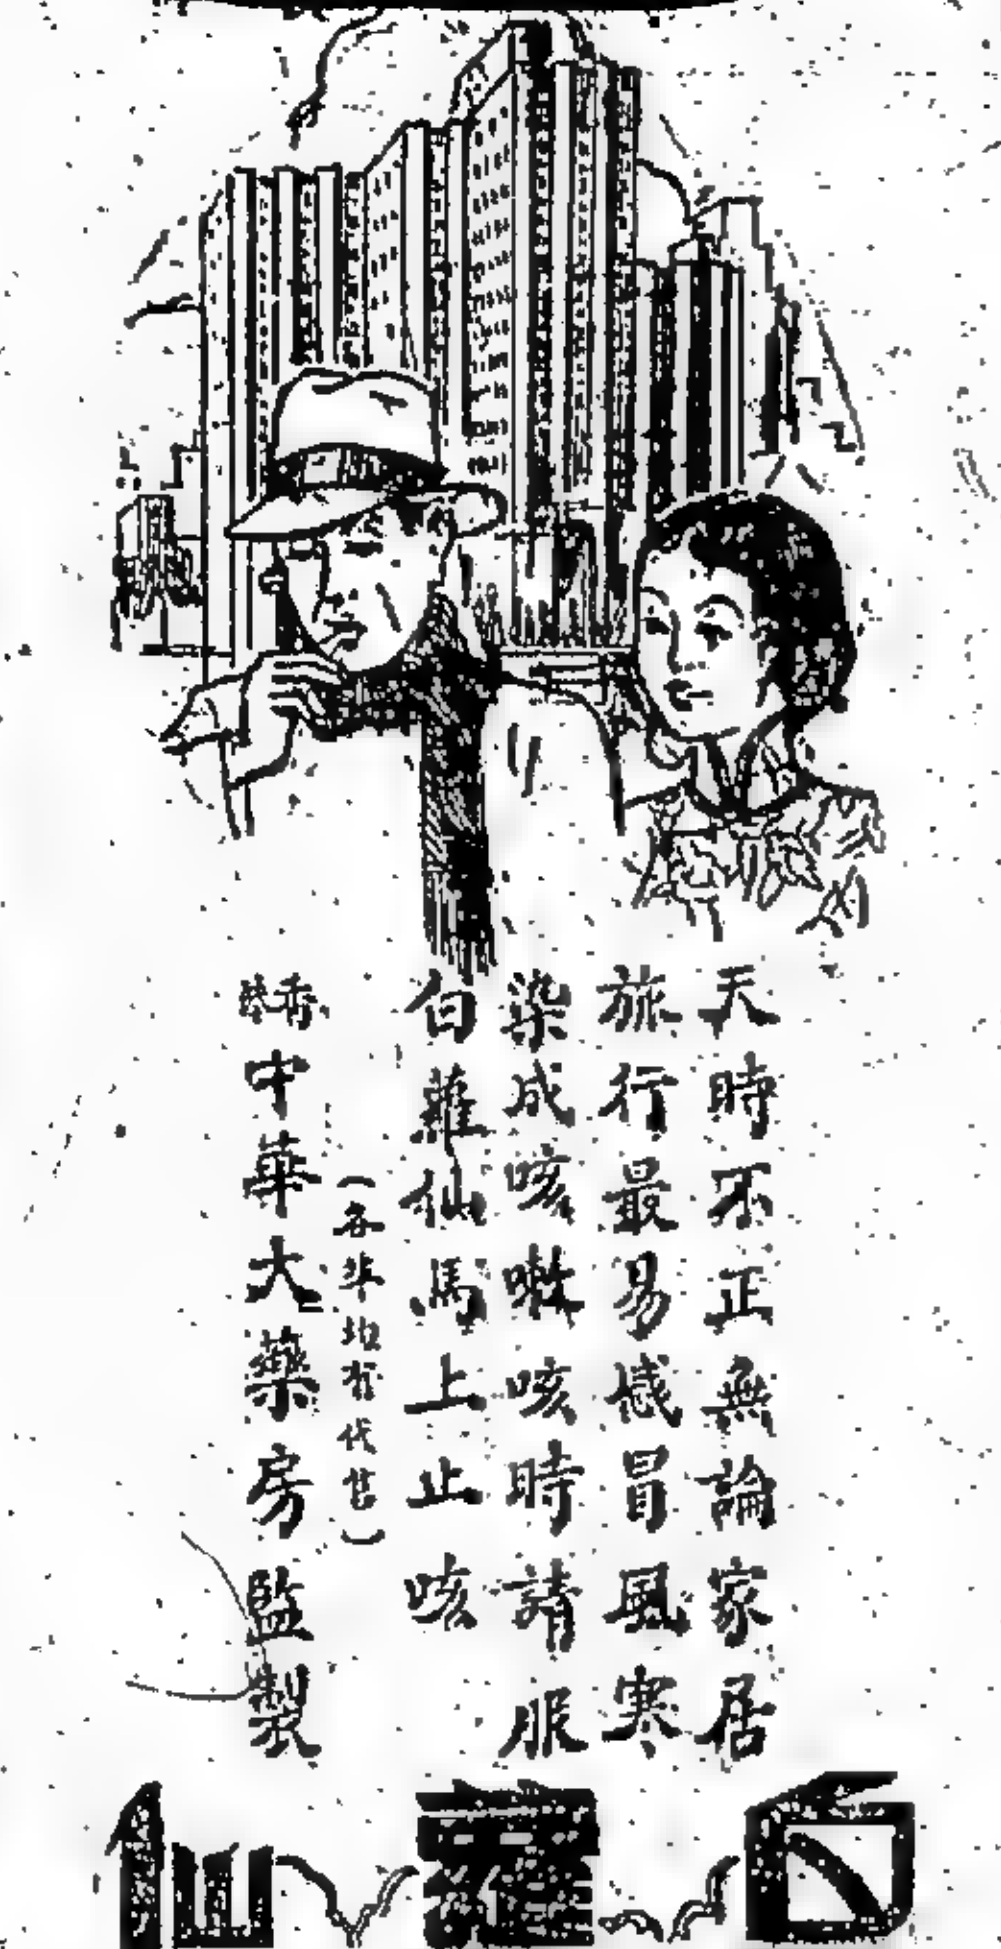 天時不正無論家居
旅行最易感冒風寒
染成咳嗽咳時請服
白蘿仙馬上止咳
(各埠均有代售)
香港中華大藥房監製
白蘿仙